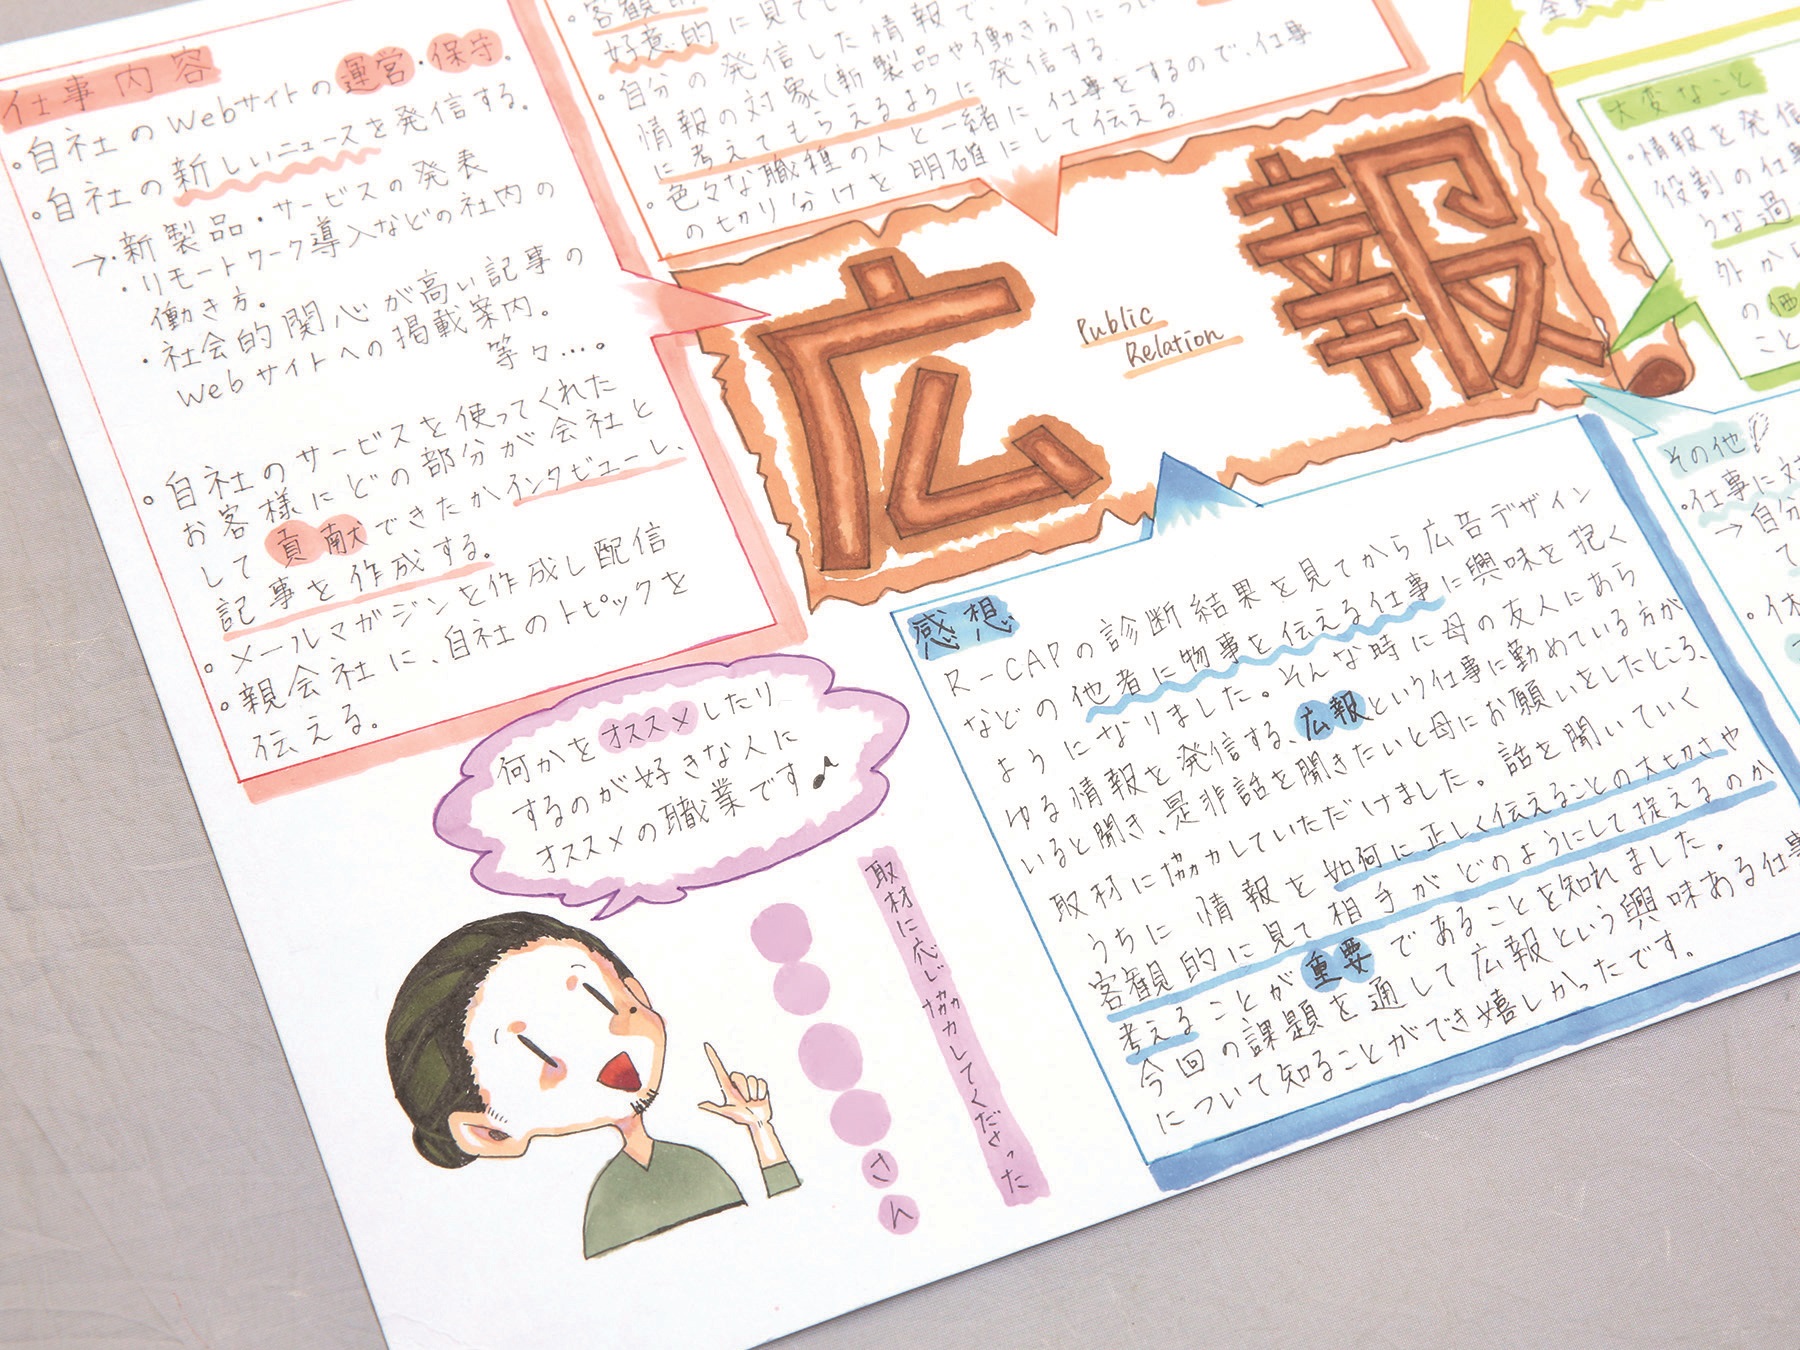 仕事内容
・自社のWebサイトの運営・保守。
・自社の新しいニュースを発信する。
→・新製品・サービスの発表
・リモートワーク導入などの社内の
働き方。
・社会的関心が高い記事の
Webサイトへの掲載案内。
等々…。
・自社のサービスを使ってくれた
お客様にどの部分が会社と
して貢献できたかインタビューし、
記事を作成する。
・メールマガジンを作成し配信
・親会社に、自社のトピックを
伝える。
好意的に見て
・自分の発信した情報で、
情報の対象(新製品や働き方)につ
に考えてもらえるように発信する。
・色々な職種の人と一緒に仕事をするので、仕事
の切り分けを明確にして伝える。
広報
Public
Relation
大変なこと
・情報を発信
役割の仕事
うな過
外から
の価
こと
その他
・仕事に対
→自分
て
感想
R-CAPの診断結果を見てから広告デザイン
などの他者に物事を伝える仕事に興味を抱く
ようになりました。そんな時に母の友人にあら
ゆる情報を発信する、広報という仕事に勤めている方が
いると聞き、是非話を聞きたいと母にお願いをしたところ、
取材に協力していただけました。話を聞いていく
うちに情報を如何に正しく伝えることの大切さや
客観的に見て相手がどのようにして捉えるのか
考えることが重要であることを知れました。
今回の課題を通して広報という興味ある仕事
について知ることができ嬉しかったです。
何かをオススメしたり
するのが好きな人に
オススメの職業です♪
取材に応じ協力してくださった
さん